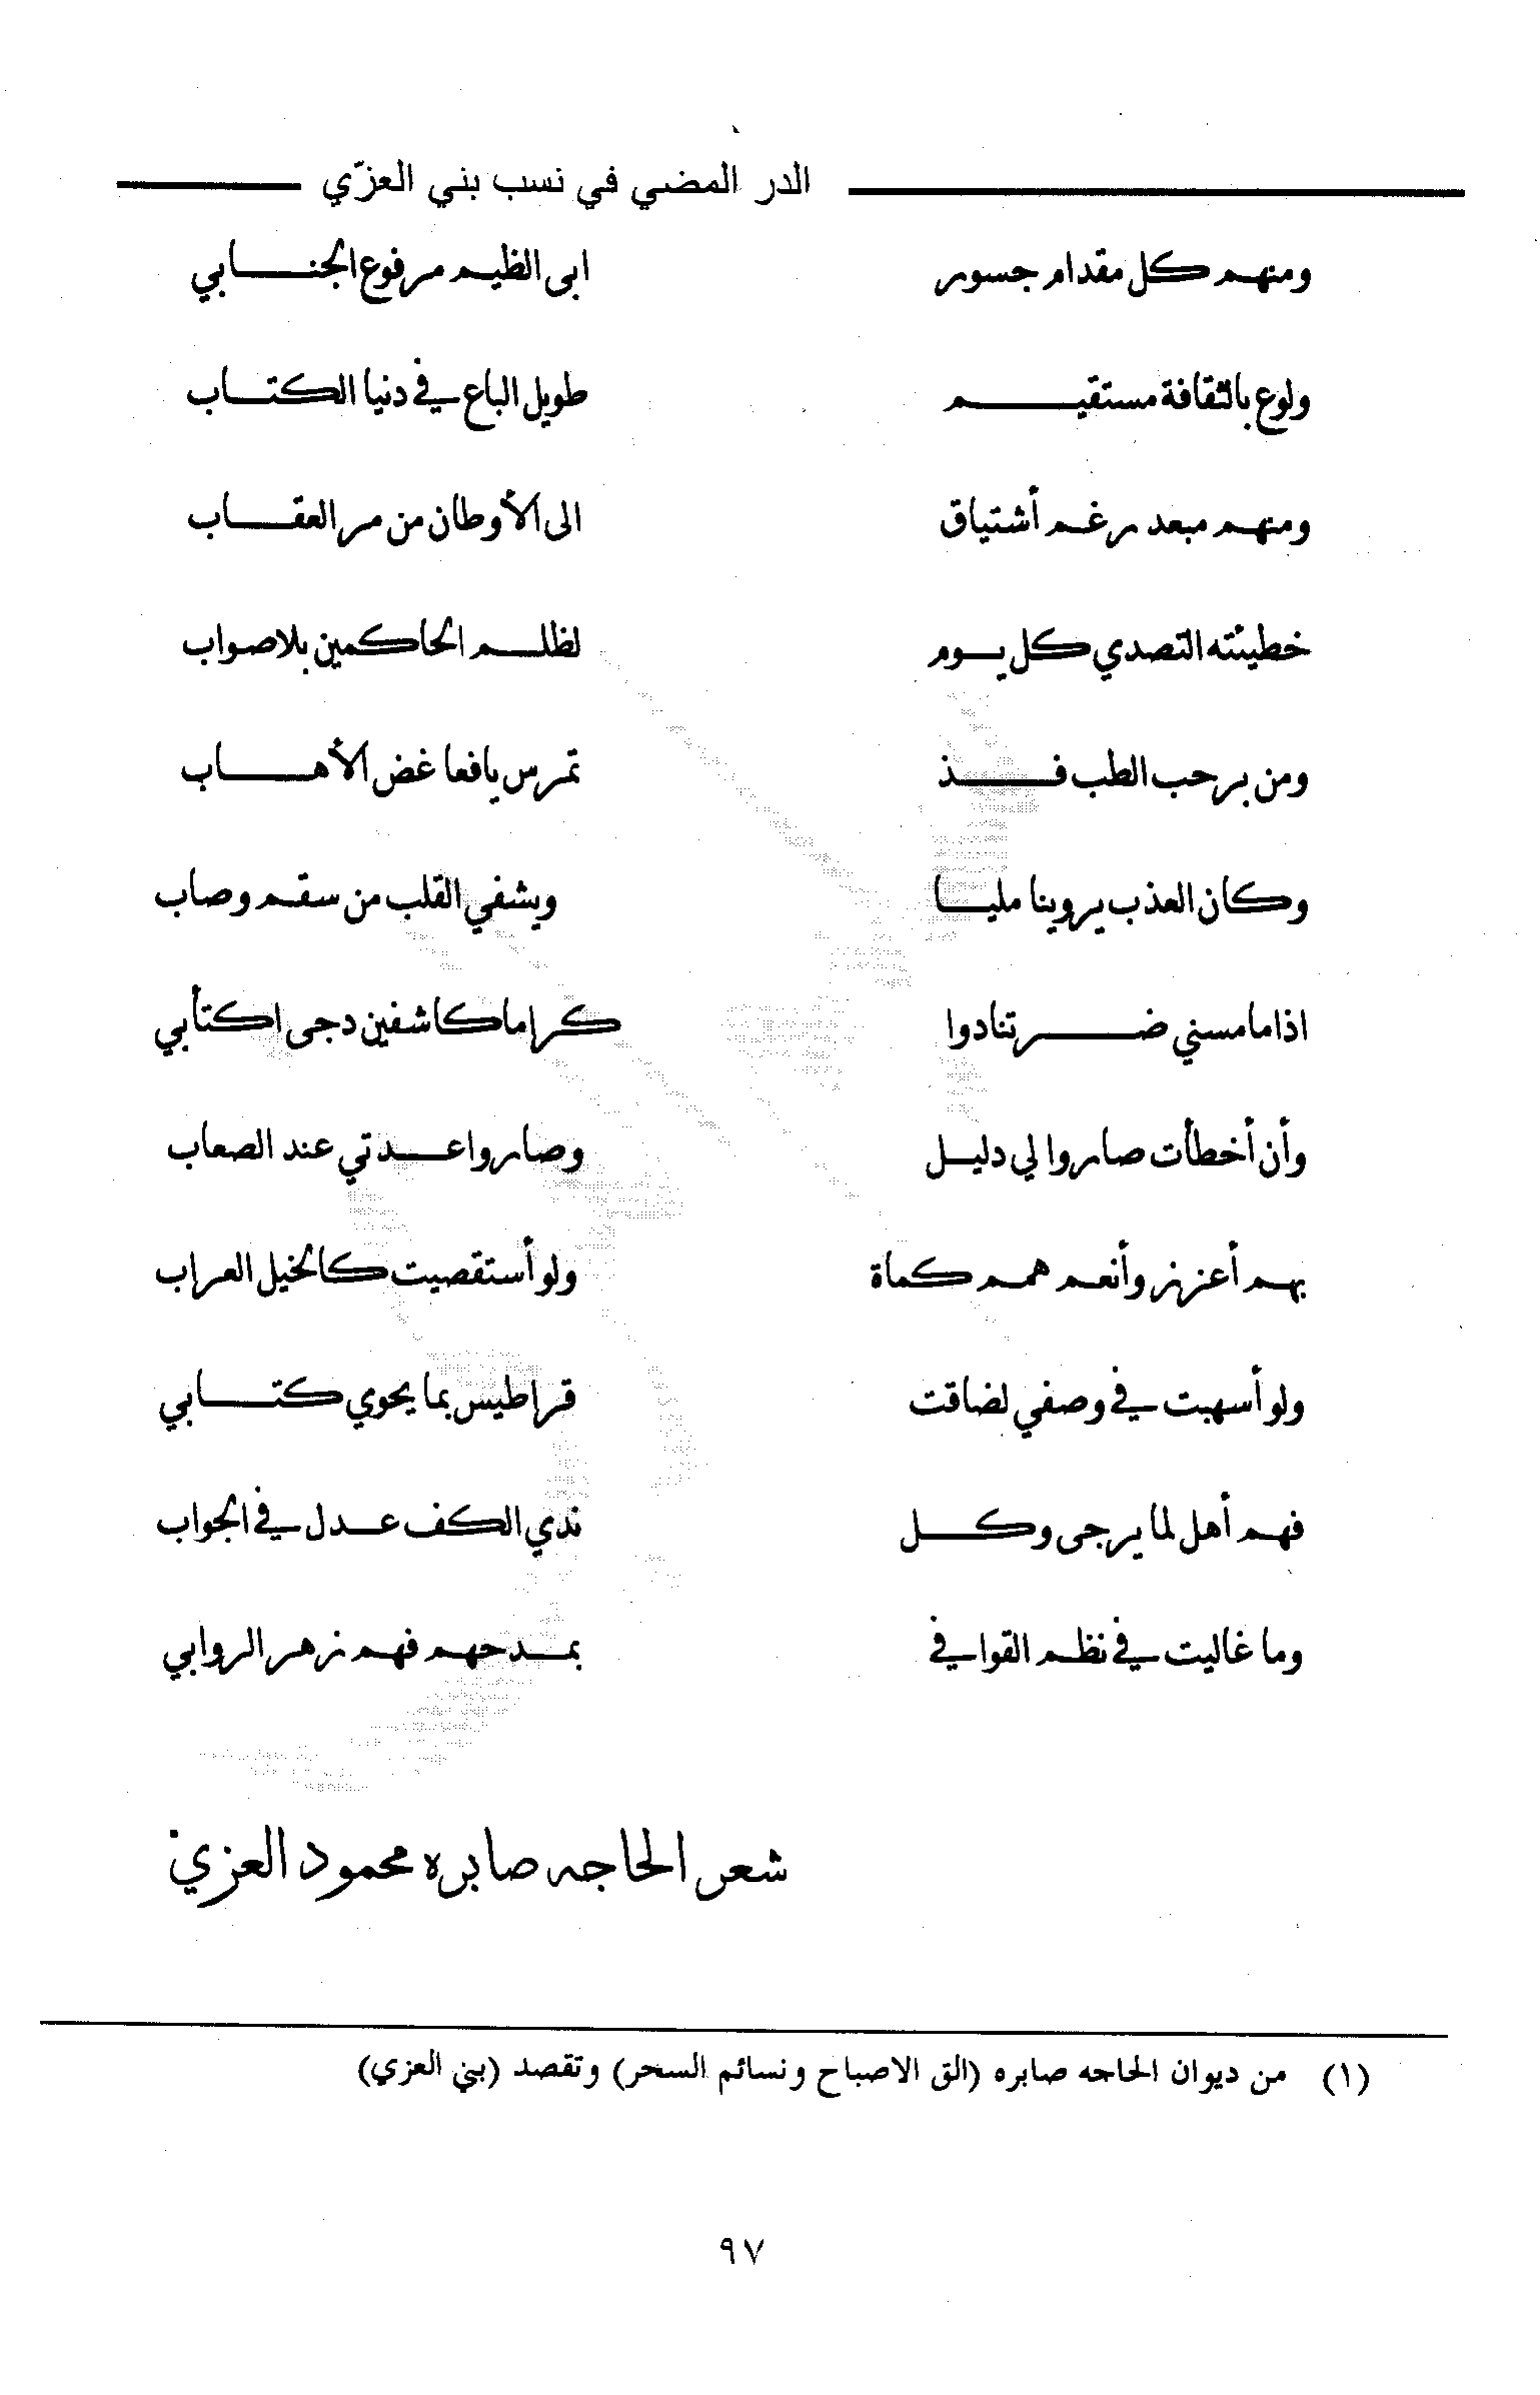 الدر المضي في نسب بني العزّي
ومنهم كل مقدام جسور ابى الظيم مرفوع الجنابي
ولوع بالثقافة مستقيم طويل الباع في دنيا الكتاب
ومنهم مبعد رغم أشتياق الى الأوطان من مر العقاب
خطيئته التصدي كل يوم لظلم الحاكمين بلا صواب
ومن برحب الطب فذ تمرس يافعا غض الأهاب
وكان العذب يروينا مليا ويشفي القلب من سقم وصاب
اذا ما مسني ضر تنادوا كراما كاشفين دجى اكتأبي
وأن أخطأت صاروا لي دليل وصاروا عدتي عند الصعاب
بهم أعزز وأنعم هم كماة ولو أستقصيت كالخيل العراب
ولو أسهبت في وصفي لضاقت قراطيس بما يحوي كتابي
فهم أهل لما يرجى وكل ندي الكف عدل في الجواب
وما غاليت في نظم القوافي بمدحهم فهم زهر الروابي
شعر الحاجه صابره محمود العزي
(١) من ديوان الحاجه صابره (الق الاصباح ونسائم السحر) وتقصد (بني العزي)
٩٧